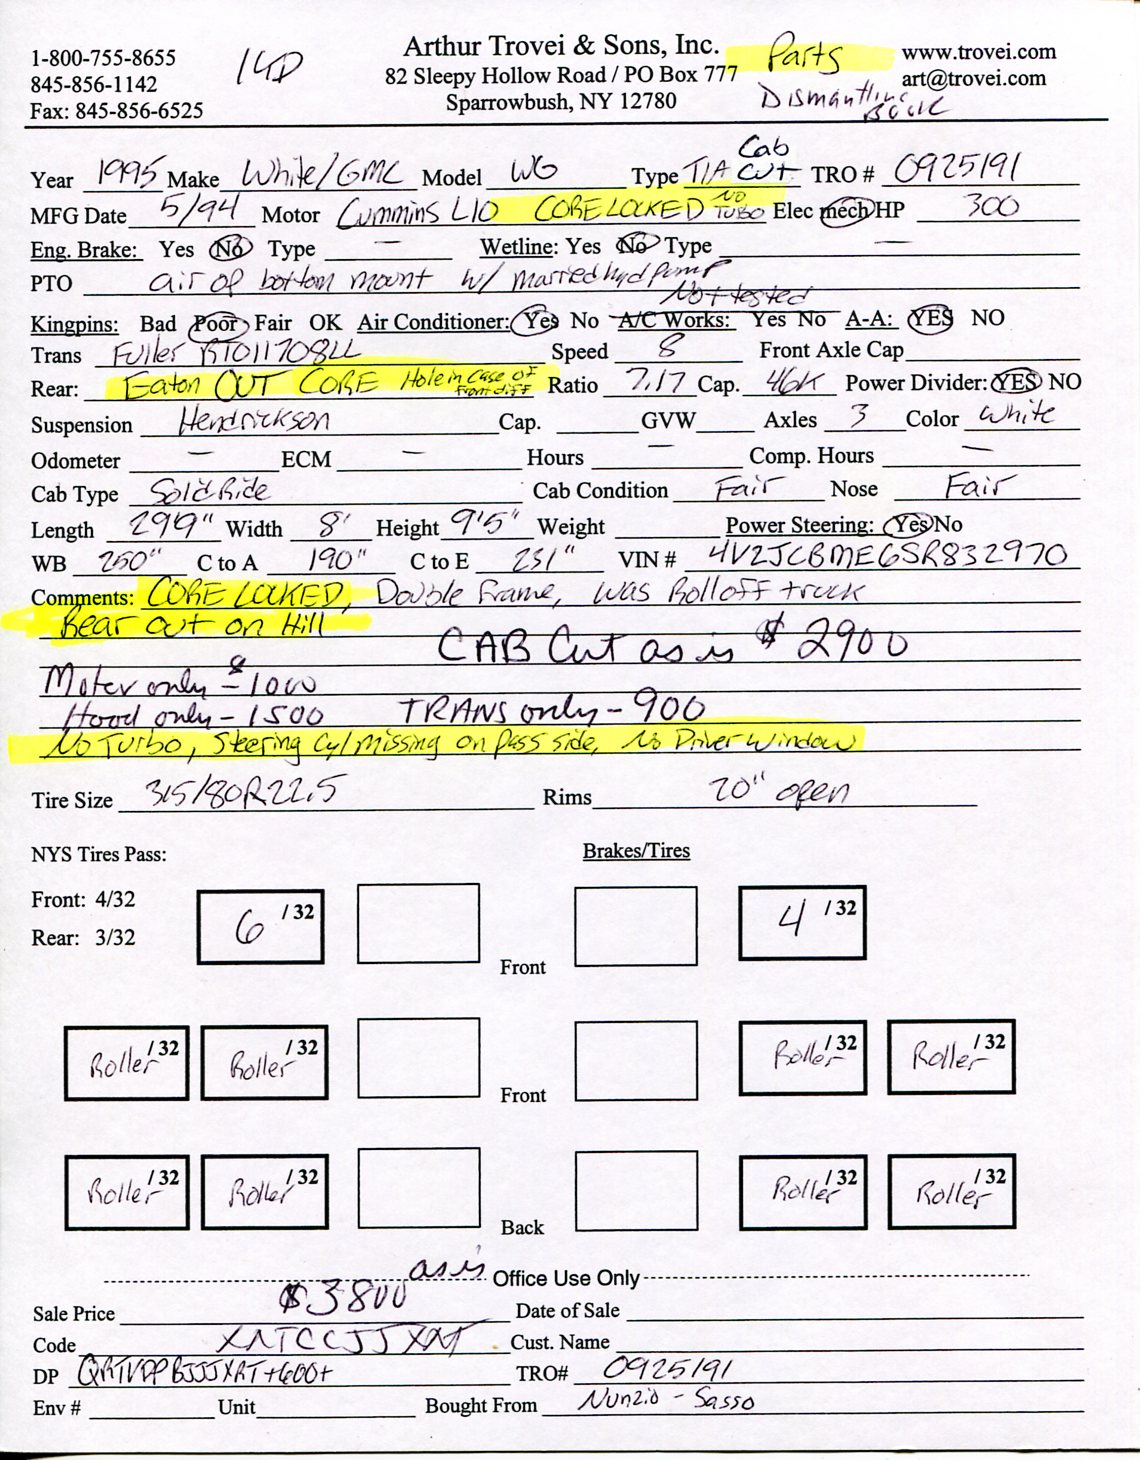 1-800-755-8655
845-856-1142
Fax: 845-856-6525
Arthur Trovei & Sons, Inc.
82 Sleepy Hollow Road / PO Box 777
Sparrowbush, NY 12780
Parts
Dismantling
www.trovei.com
art@trovei.com
Year 1995 Make White/GMC Model WG Type T/A Cab Cut TRO # 0925191
MFG Date 5/94 Motor Cummins L10 CORE LOCKED NO TURBO Elec mech HP 300
Eng. Brake: Yes No Type — Wetline: Yes No Type —
PTO air op bottom mount w/ married hyd pump
Not tested
Kingpins: Bad Poor Fair OK Air Conditioner: Yes No A/C Works: Yes No A-A: YES NO
Trans Fuller RTO11708LL Speed 8 Front Axle Cap
Rear: Eaton OUT CORE Hole in case of Front diff Ratio 7.17 Cap. 46K Power Divider: YES NO
Suspension Hendrickson Cap. GVW Axles 3 Color White
Odometer — ECM — Hours — Comp. Hours —
Cab Type Solid Ride Cab Condition Fair Nose Fair
Length 29'9" Width 8' Height 9'5" Weight Power Steering: Yes No
WB 250" C to A 190" C to E 231" VIN # 4V2JCBME6SR832970
Comments: CORE LOCKED, Double Frame, was Rolloff truck
Rear out on Hill
CAB Cut as is $2900
Motor only - $1000
Hood only - 1500 TRANS only - 900
No Turbo, Steering Cyl missing on pass side, No Driver Window
Tire Size 315/80R22.5 Rims 20" open
NYS Tires Pass: Brakes/Tires
Front: 4/32
Rear: 3/32
6 /32 4 /32
Front
Roller /32 Roller /32 Roller /32 Roller /32
Front
Roller /32 Roller /32 Roller /32 Roller /32
Back
as is Office Use Only
Sale Price $3800 Date of Sale
Code XATCCJJXAT Cust. Name
DP TRO# 0925191
Env # Unit Bought From Nunzio - Sasso